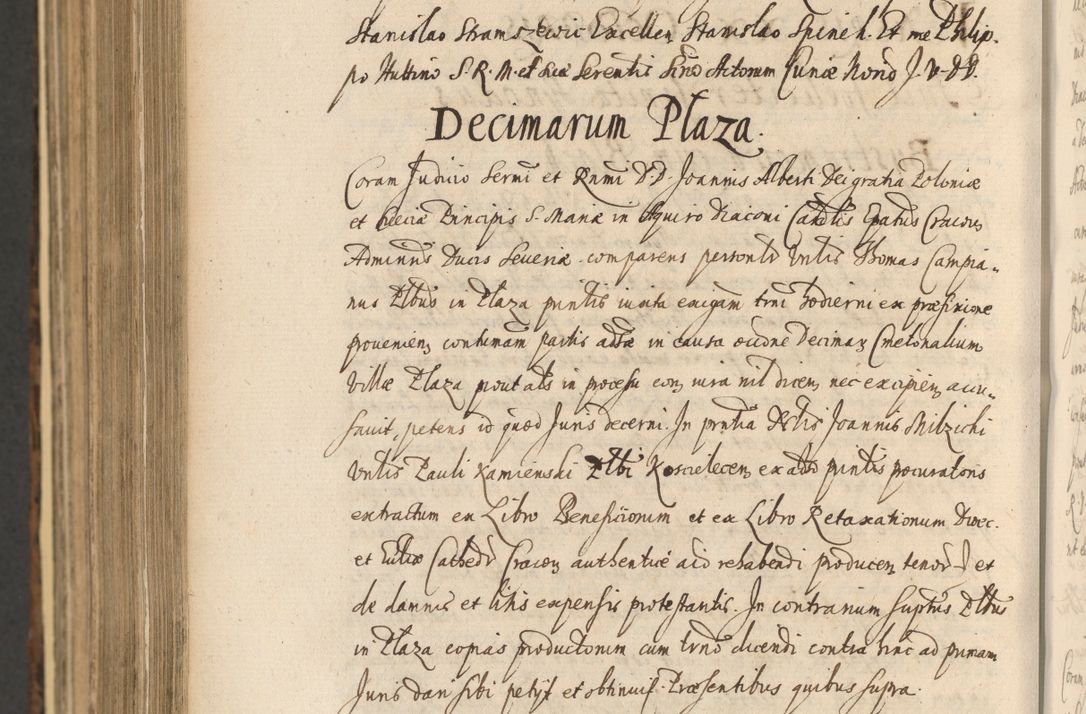 Stanislao Stramszewic Excellen Stanislao Spinek. Et me Philip-
po Huttino S. R. M. et Sueciæ Serentis Actorum Curiæ Nono J. V. D D.
Decimarum Plaza.
Coram Judicio Sermi et Rnmi D. D. Joannis Alberti Dei gratia Poloniæ
et Sueciæ Principis S. Mariæ in Aquiro Diaconi Cardlis Epatus Cracovn
Adminris Ducis Severiæ comparens personlr Vnlis Thomas Campia-
nus Plbus in Plaza pnntis iuxta exigam trni hodierni ex præfixione
provenien continam partis adsæ in causa occne Decimar Cmetonalium
Villæ Plaza prout als in processu eon iura nil dicen nec excipien accu-
savit, petens id quod Juris decerni. In prntia Joannis Milzicki
Vnlis Pauli Kamienski Plbi Koscielecen ex adso pnntis procuratoris
extractum ex Libro Beneficiorum et ex Libro Retaxationum Diœc.
et Ecclæ Cathedr Cracoven authenticè ad rehabendi producen tenor et
de damnis et litis expensis protestantis. In contrarium suptus Plbus
in Plaza copias productorum cum trno dicendi contra hinc ad primam
Juris dari sibi petyt et obtinuit. Præsentibus quibus supra.